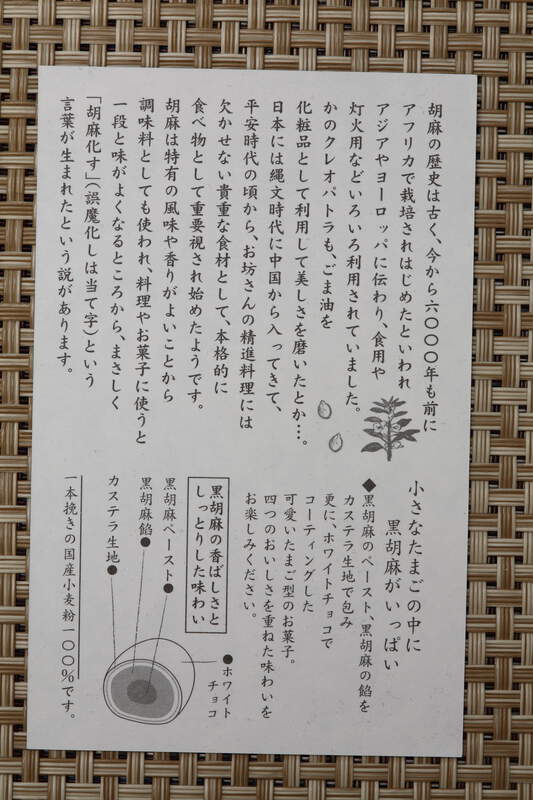 胡麻の歴史は古く、今から六〇〇〇年も前に
アフリカで栽培されはじめたといわれ
アジアやヨーロッパに伝わり、食用や
灯火用などいろいろ利用されていました。
かのクレオパトラも、ごま油を
化粧品として利用して美しさを磨いたとか…。
日本には縄文時代に中国から入ってきて、
平安時代の頃から、お坊さんの精進料理には
欠かせない貴重な食材として、本格的に
食べ物として重要視され始めたようです。
胡麻は特有の風味や香りがよいことから
調味料としても使われ、料理やお菓子に使うと
一段と味がよくなるところから、まさしく
「胡麻化す」(誤魔化しは当て字)という
言葉が生まれたという説があります。
小さなたまごの中に
黒胡麻がいっぱい
◆黒胡麻のペースト、黒胡麻の餡を
カステラ生地で包み
更に、ホワイトチョコで
コーティングした
可愛いたまご型のお菓子。
四つのおいしさを重ねた味わいを
お楽しみください。
黒胡麻の香ばしさと
しっとりした味わい
ホワイト
チョコ
黒胡麻ペースト
黒胡麻餡
カステラ生地
一本挽きの国産小麦粉一〇〇%です。